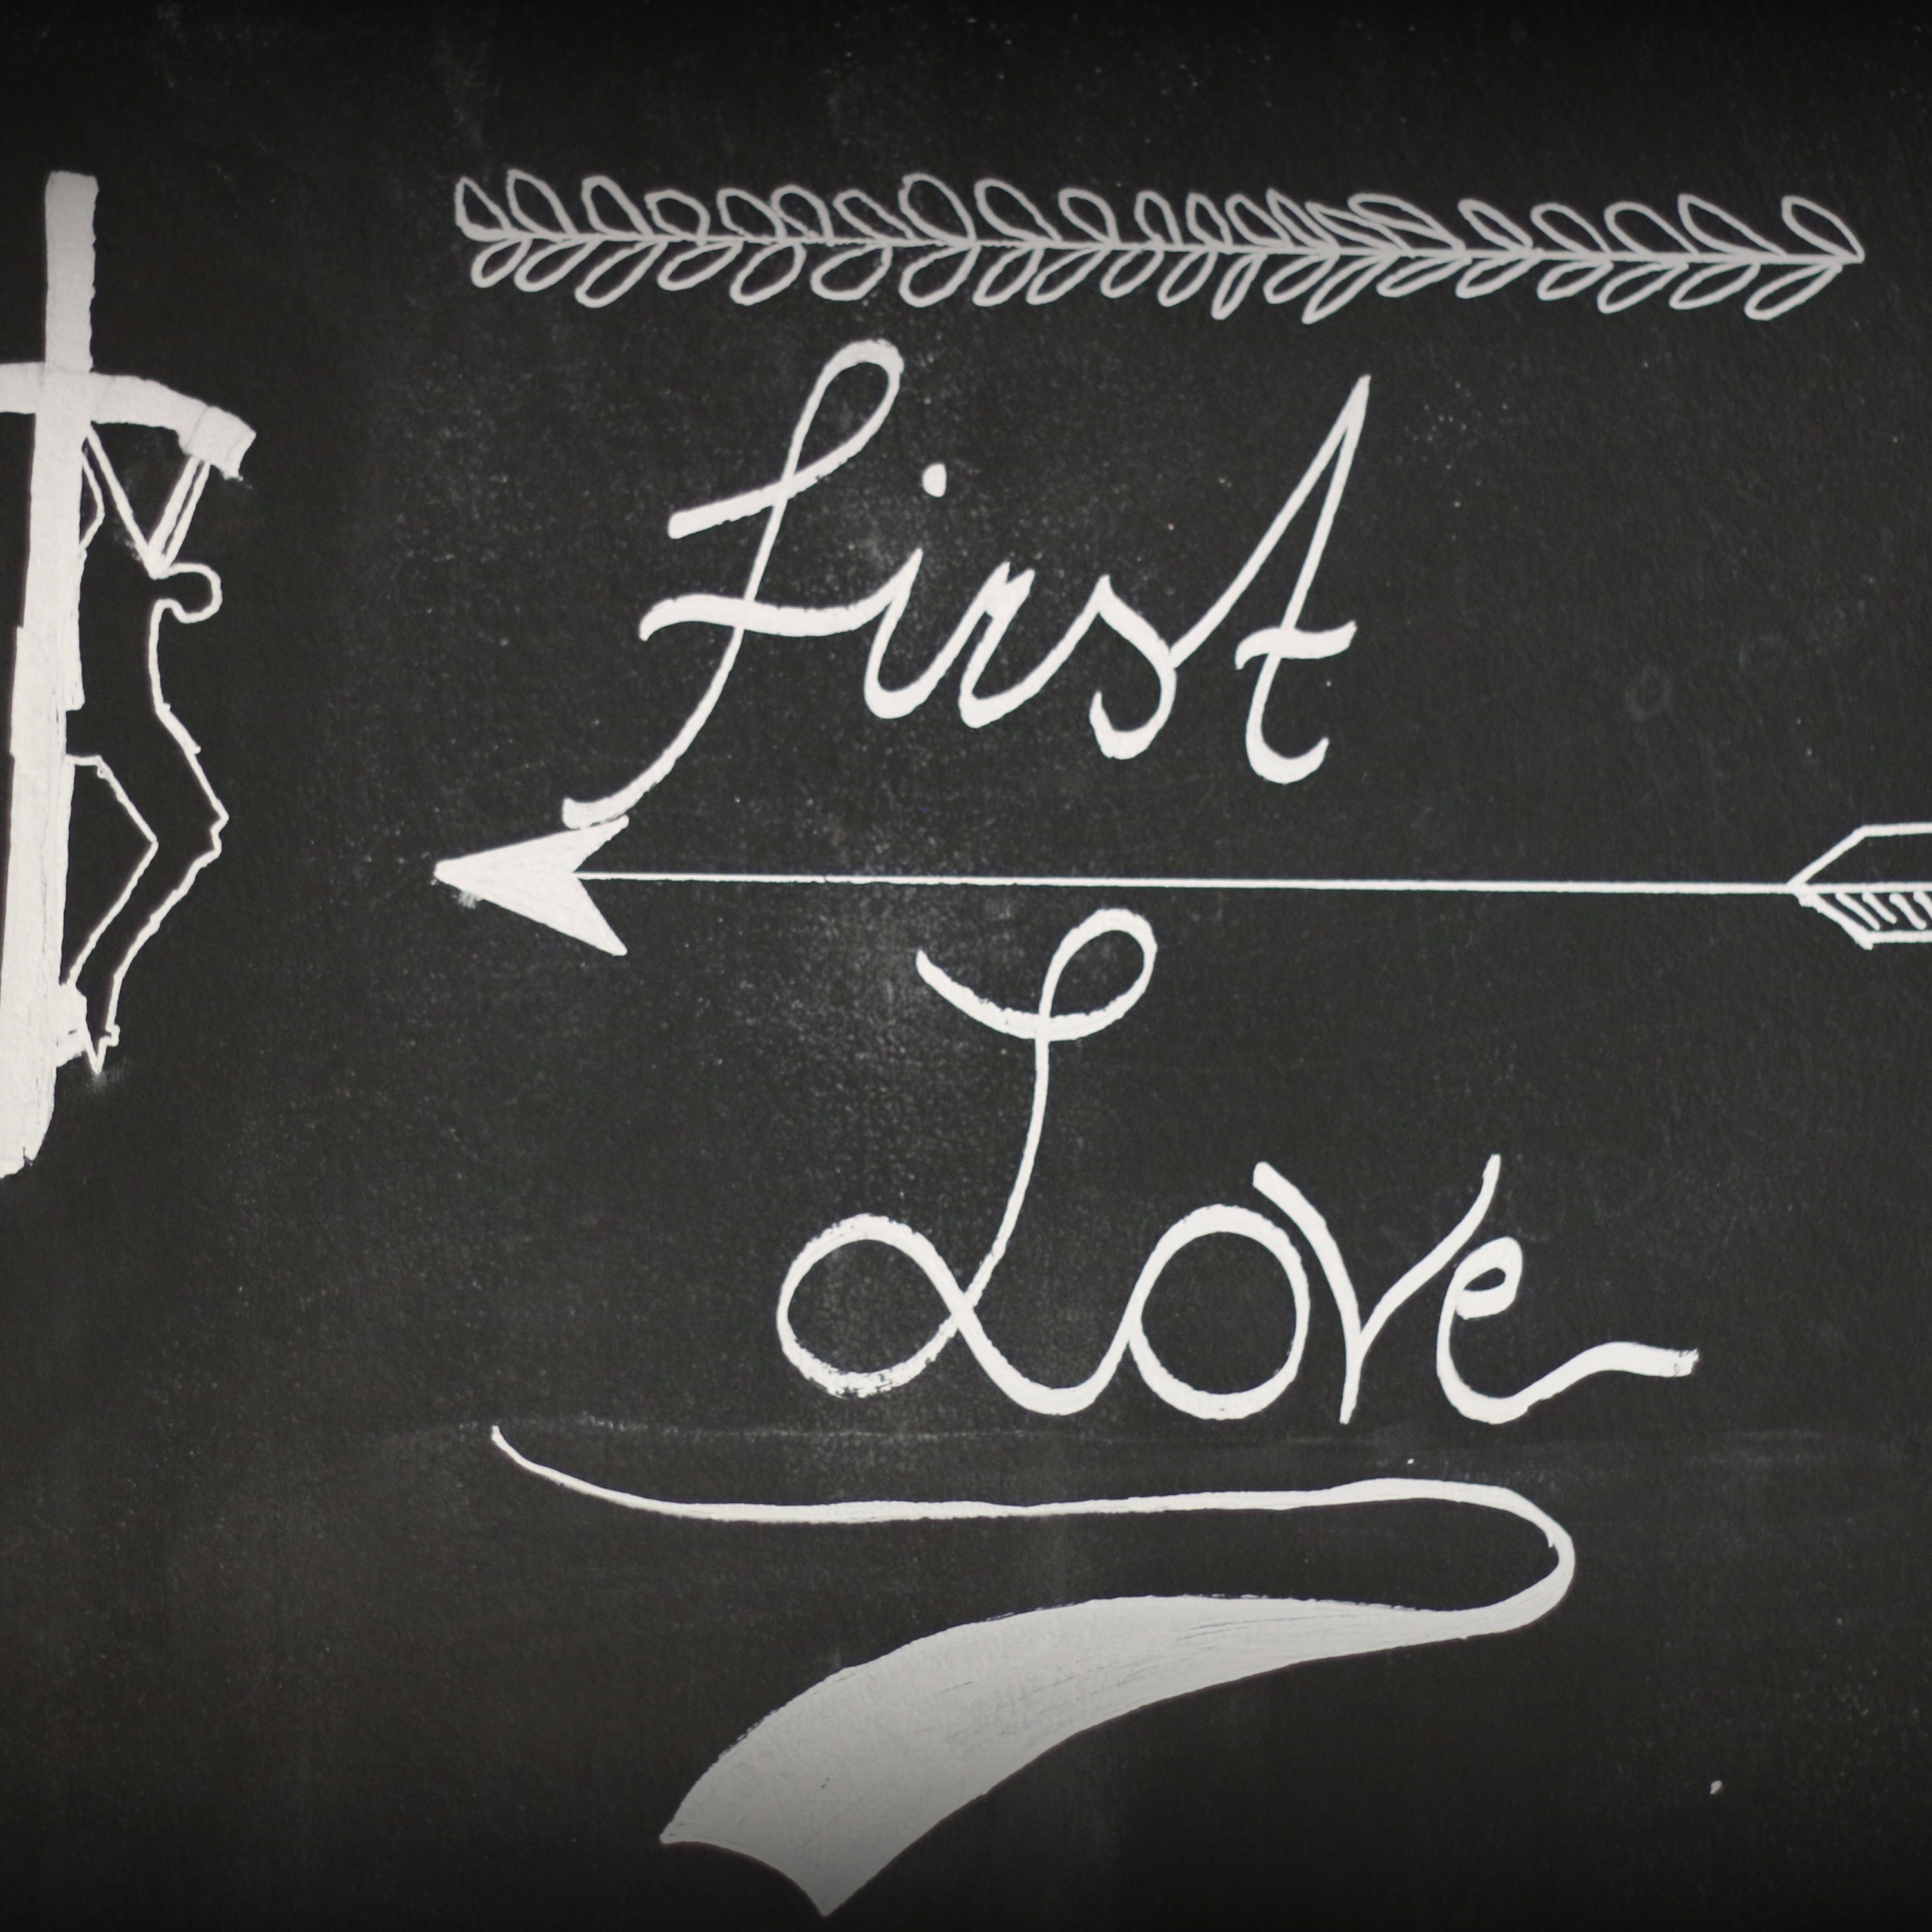 First
Love